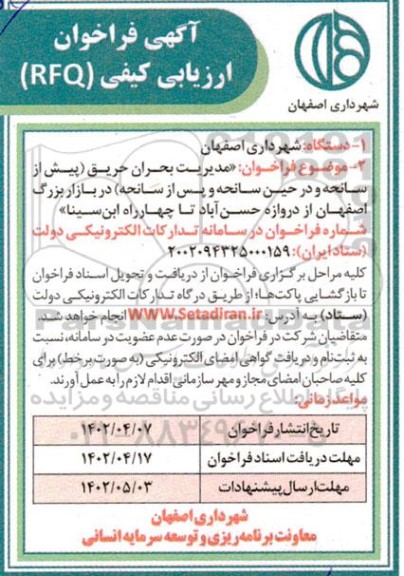 آگهی فراخوان
ارزیابی کیفی (RFQ)
شهرداری اصفهان
۱- دستگاه: شهرداری اصفهان
۲- موضوع فراخوان: «مدیریت بحران حریق (پیش از
سانحه و در حین سانحه و پس از سانحه) در بازار بزرگ
اصفهان از دروازه حسن‌آباد تا چهارراه ابن‌سینا»
شماره فراخوان در سامانه تدارکات الکترونیکی دولت
(ستاد ایران): ۲۰۰۲۰۹۴۳۲۵۰۰۰۱۵۹
کلیه مراحل برگزاری فراخوان از دریافت و تحویل اسناد فراخوان
تا بازگشایی پاکت‌ها؛ از طریق درگاه تدارکات الکترونیکی دولت
(ستاد) به آدرس: WWW.Setadiran.ir انجام خواهد شد.
متقاضیان شرکت در فراخوان در صورت عدم عضویت در سامانه، نسبت
به ثبت‌نام و دریافت گواهی امضای الکترونیکی (به صورت برخط) برای
کلیه صاحبان امضای مجاز و مهر سازمانی اقدام لازم را به عمل آورند.
مواعد زمانی:
تاریخ انتشار فراخوان ۱۴۰۲/۰۴/۰۷
مهلت دریافت اسناد فراخوان ۱۴۰۲/۰۴/۱۷
مهلت ارسال پیشنهادات ۱۴۰۲/۰۵/۰۳
شهرداری اصفهان
معاونت برنامه‌ریزی و توسعه سرمایه انسانی